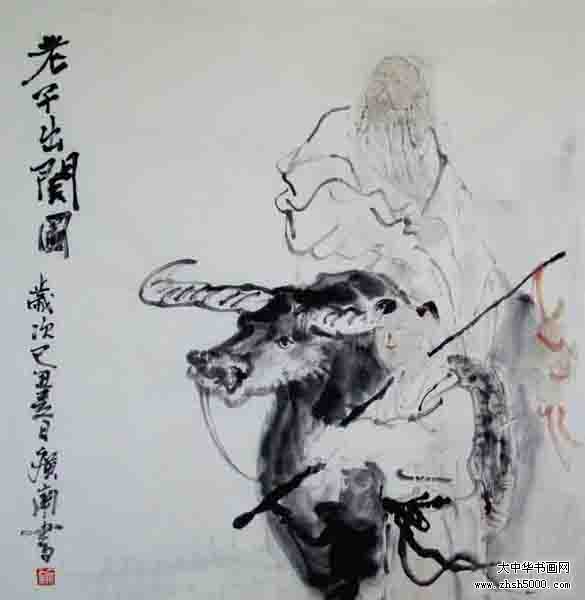 老子出關圖
歲次己丑夏日廣南書
大中华书画网
www.zhsh5000.com